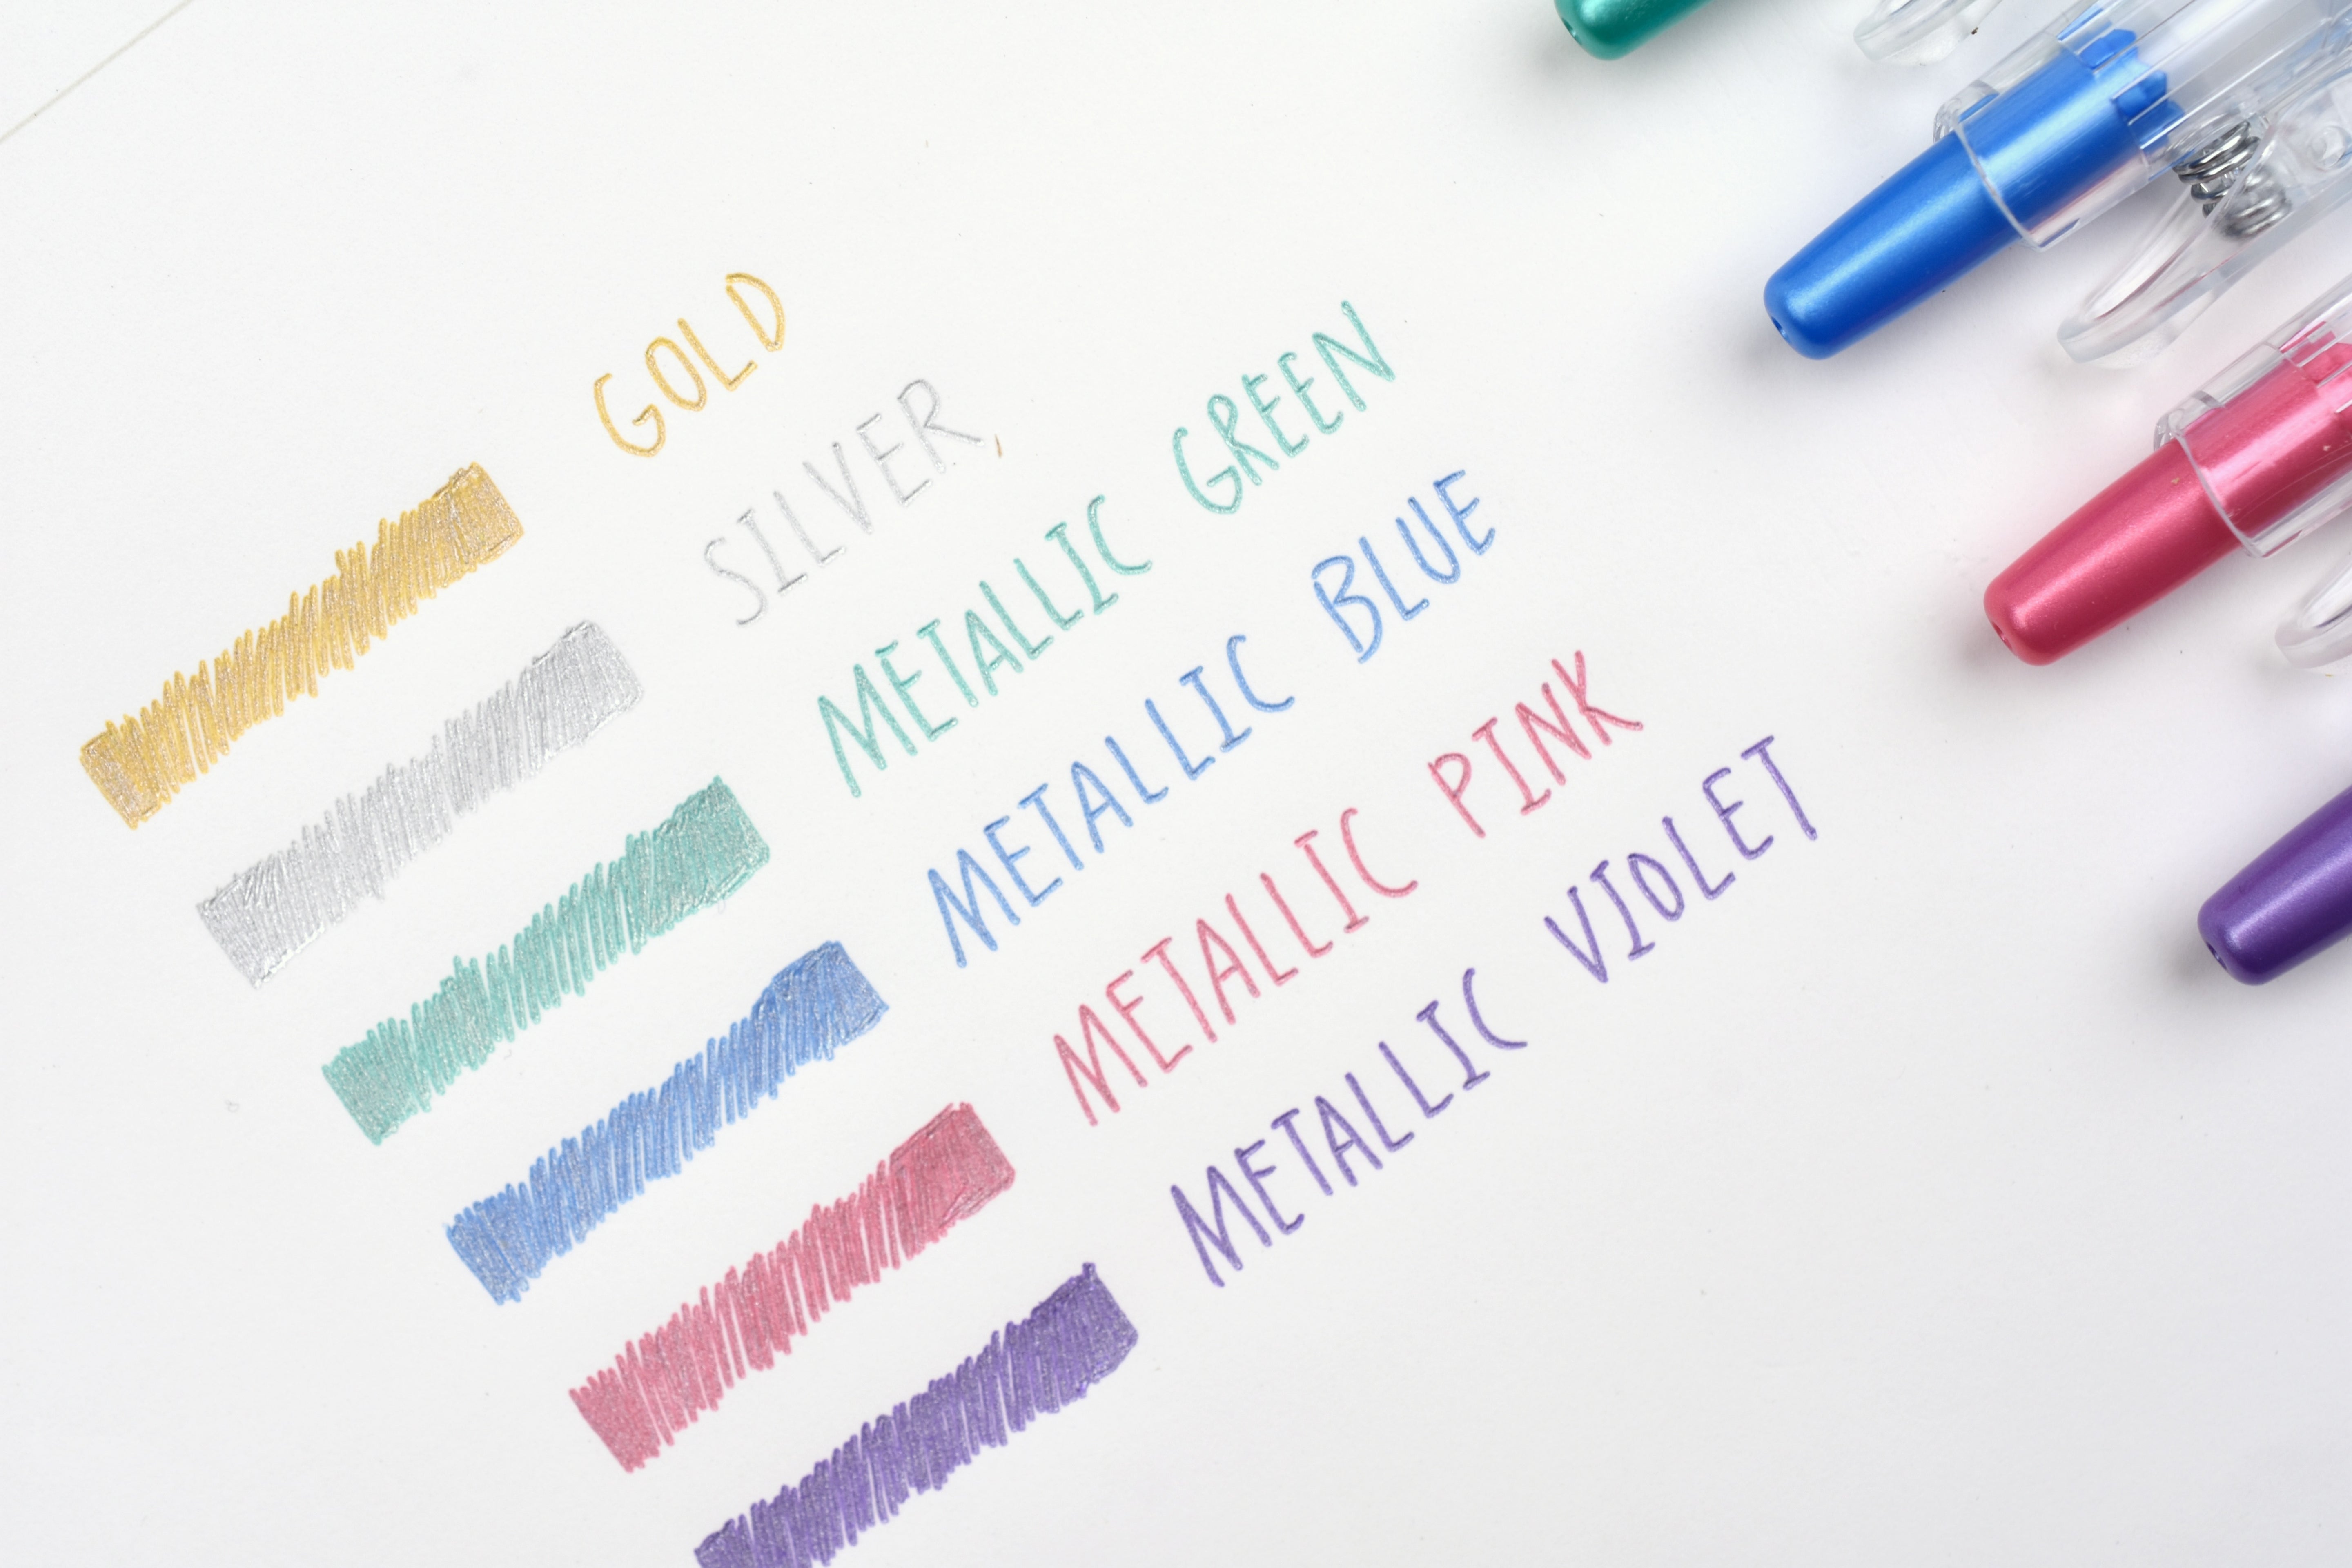 GOLD
SILVER
METALLIC GREEN
METALLIC BLUE
METALLIC PINK
METALLIC VIOLET